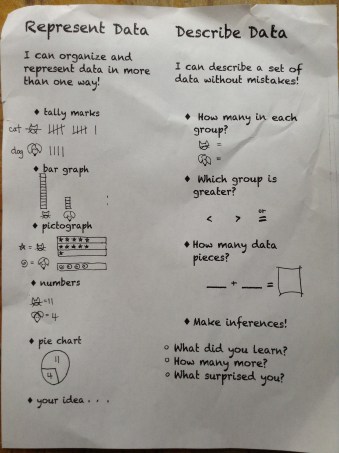 Represent Data
I can organize and
represent data in more
than one way!
♦ tally marks
cat
dog
♦ bar graph
♦ pictograph
=
=
♦ numbers
=11
=4
♦ pie chart
11
4
♦ your idea . . .
Describe Data
I can describe a set of
data without mistakes!
♦ How many in each
group?
=
=
♦ Which group is
greater?
or
< > =
♦ How many data
pieces?
__ + __ =
♦ Make inferences!
o What did you learn?
o How many more?
o What surprised you?